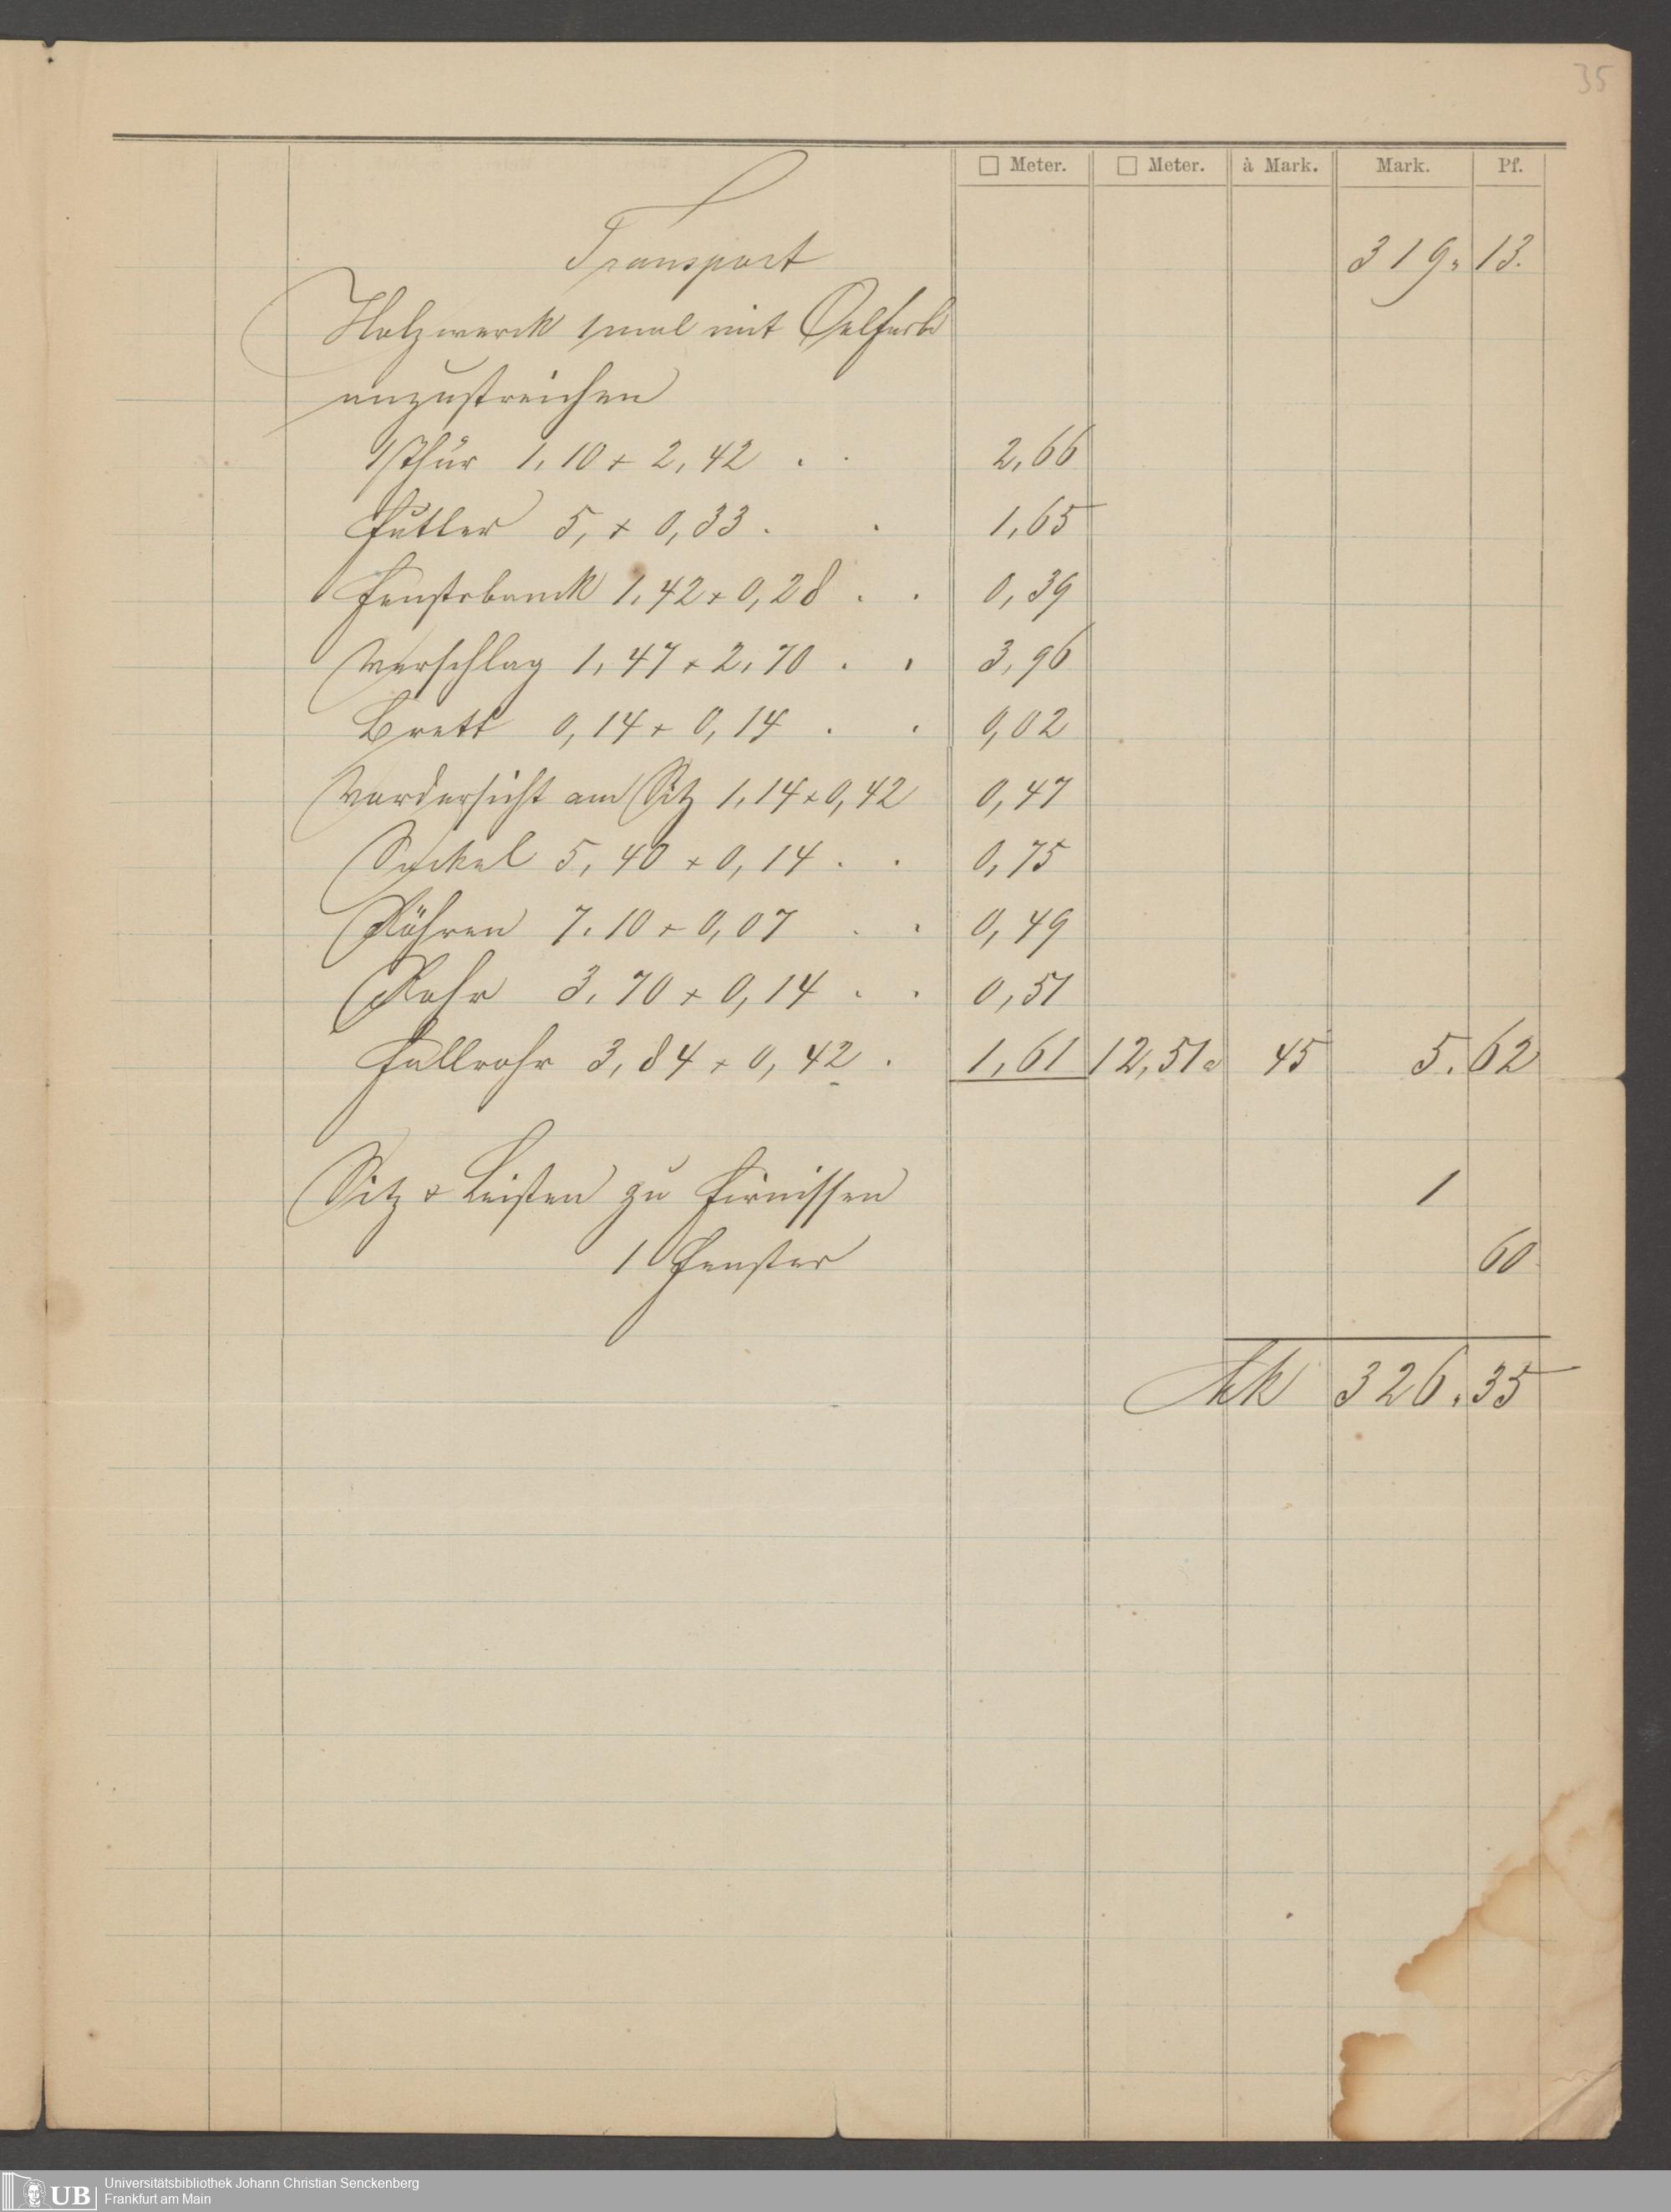 35
□ Meter. □ Meter. à Mark. Mark. Pf.
Transport 319. 13.
Holzwerck 1mal mit Oelfarbe
anzustreichen
1 Thür 1,10 + 2,42 . . 2,66
Futter 5, + 0,33 . . 1,65
Fenstrbanck 1,42 + 0,28 . . 0,39
Verschlag 1,47 + 2,70 . . 3,96
Brett 0,14 + 0,14 . . 0,02
Vordersicht am Sitz 1,14 + 0,42 0,47
Sockel 5,40 + 0,14 . . 0,75
Röhren 7,10 + 0,07 . . 0,49
Rohr 3,70 + 0,14 . . 0,51
Fallrohr 3,84 + 0,42 . 1,61 12,51 a 45 5. 62
Sitz & Leisten zu firnissen 1
1 Fenster 60
Mk 326. 35
UB Universitätsbibliothek Johann Christian Senckenberg
Frankfurt am Main